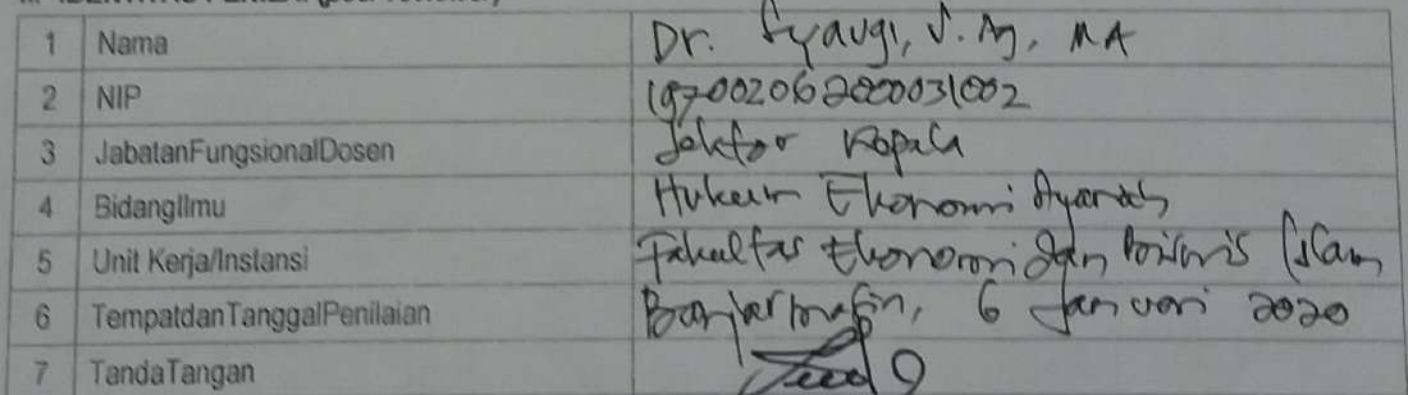 1 Nama Dr. Syauqi, S.Ag, MA
2 NIP 197002062000031002
3 JabatanFungsionalDosen Lektor Kepala
4 BidangIlmu Hukum Ekonomi Syariah
5 Unit Kerja/Instansi Fakultas Ekonomi dan Bisnis Islam
6 TempatdanTanggalPenilaian Banjarmasin, 6 Januari 2020
7 TandaTangan